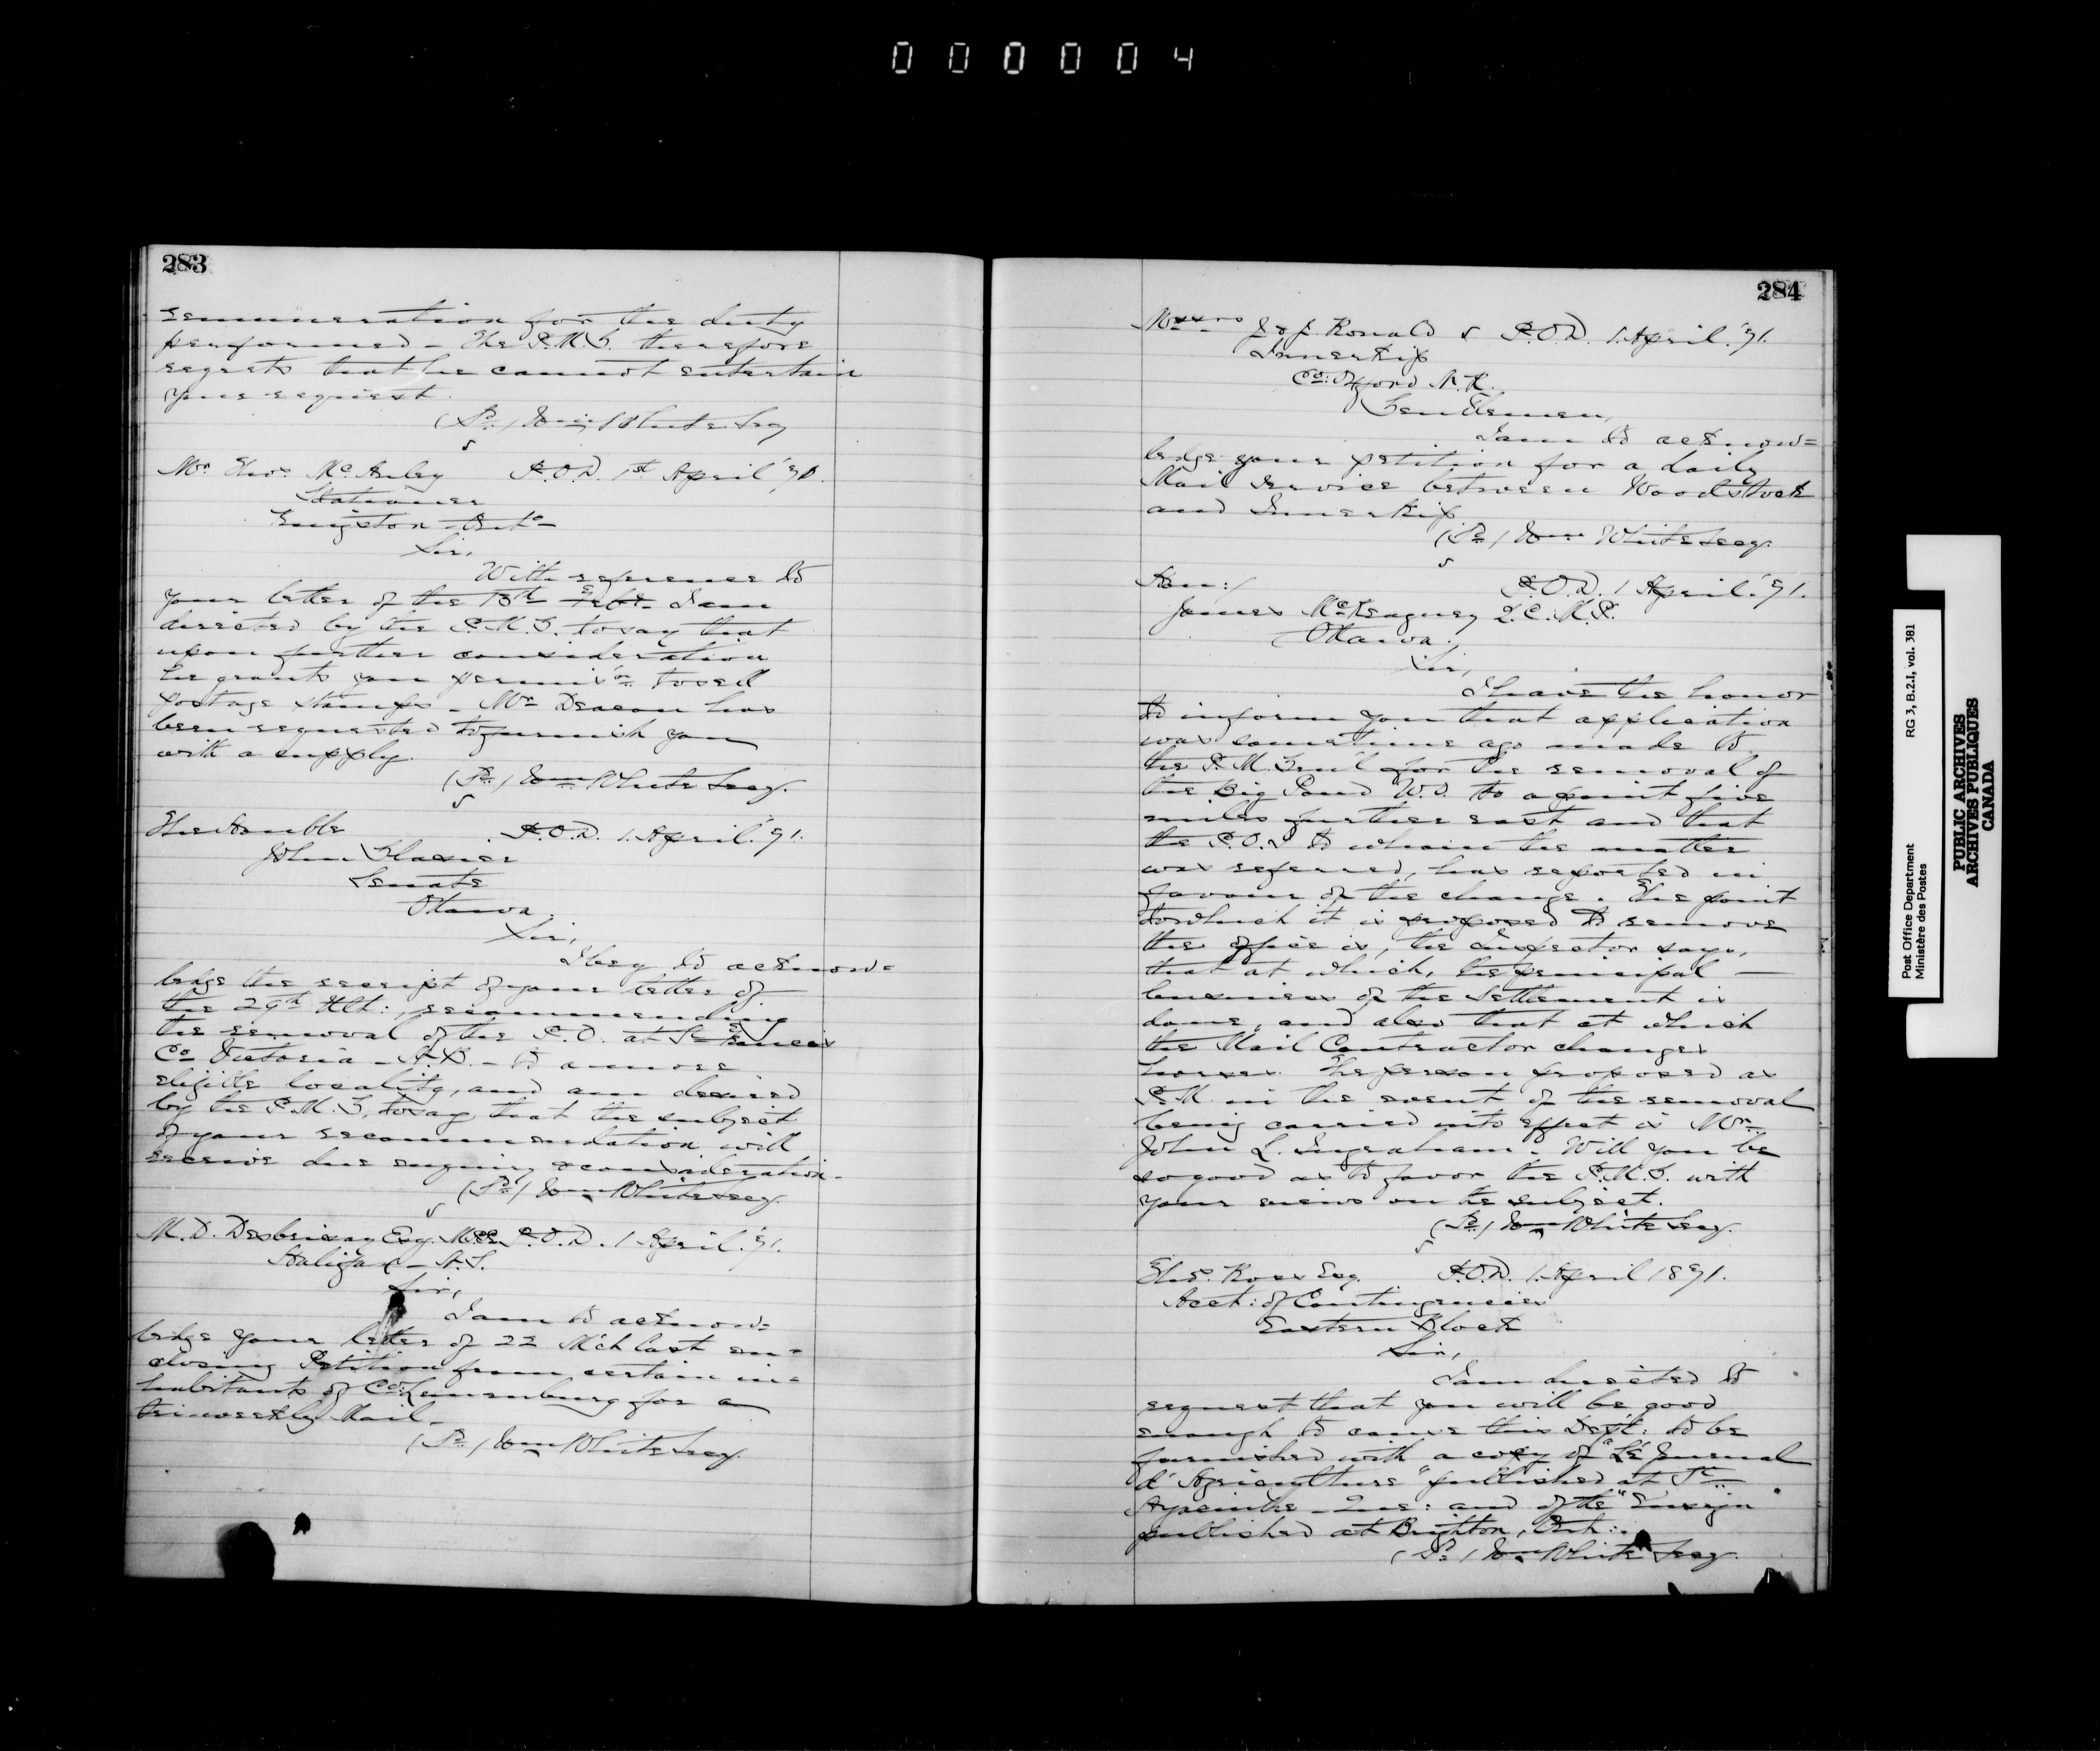 000004
283
remuneration for the duty
performed - The P.M.G. therefore
regrets that he cannot entertain
your request.
(Sd.) Wm White Secy
Mr Thos. McAuley P.O.D. 1st April '91.
Stationer
Kingston - Onto
Sir,
With reference to
your letter of the 18th Feby. I am
directed by the P.M.G. to say that
upon further consideration
he grants you permis'on to sell
postage stamps - Mr Deacon has
been requested to furnish you
with a supply.
(Sd.) Wm White Secy.
The Honble P.O.D. 1. April '91.
John Glasier
Senate
Ottawa.
Sir,
I beg to acknow=
ledge the receipt of your letter of
the 29th Ult:, recommending
the removal of the P.O. at St Francis
Co Victoria - N.B. - to a more
eligible locality, and am desired
by the P.M.G. to say, that the subject
of your recommendation will
receive due enquiry & consideration.
(Sd.) Wm White Secy.
M.D. Desbrisay Esq. P.O.D. 1 April. '91.
Halifax - N.S.
Sir,
I am to acknow=
ledge your letter of 22 M'ch last en=
closing Petition from certain in=
habitants of Co: Lunenburg for a
tri-weekly Mail -
(Sd.) Wm White Secy.
284
Messrs J & J. Ronald P.O.D. 1. April. '91.
Innerkip
Co: Oxford N.R.
Gentlemen,
I am to acknow=
ledge your petition for a daily
Mail Service between Woodstock
and Innerkip
(Sd.) Wm White Secy.
Hon:/ P.O.D. 1 April. '91.
James Q.C. M.P.
Ottawa.
Sir,
I have the honor
to inform you that application
was sometime ago made to
the P.M. Gen'l for the removal of
the Big Pond W.O. to a point five
miles further east and that
the P.O.I to whom the matter
was referred, has reported in
favour of the change. The point
to which it is proposed to remove
the office is, the inspector says,
that at which, the principal -
business of the Settlement is
done, and also that at which
the Mail Contractor changes
horses. The person proposed as
P.M. in the event of the removal
being carried into effect is Mr
John L. Ingraham. Will you be
so good as to favor the P.M.G. with
your views on the subject.
(Sd.) Wm White Secy.
Thos. Ross Esq. P.O.D. 1. April 1891.
Acct: of Contingencies
Eastern Block
Sir,
I am directed to
request that you will be good
enough to cause this Dept: to be
furnished with a copy of "Le Journal
d'Agriculture" published at St
Hyacinthe - Que: and of the "Ensign"
published at Brighton, Ont:.
(Sd.) Wm White Secy.
Post Office Department RG 3, B.2.I, vol. 381
Ministère des Postes
PUBLIC ARCHIVES
ARCHIVES PUBLIQUES
CANADA